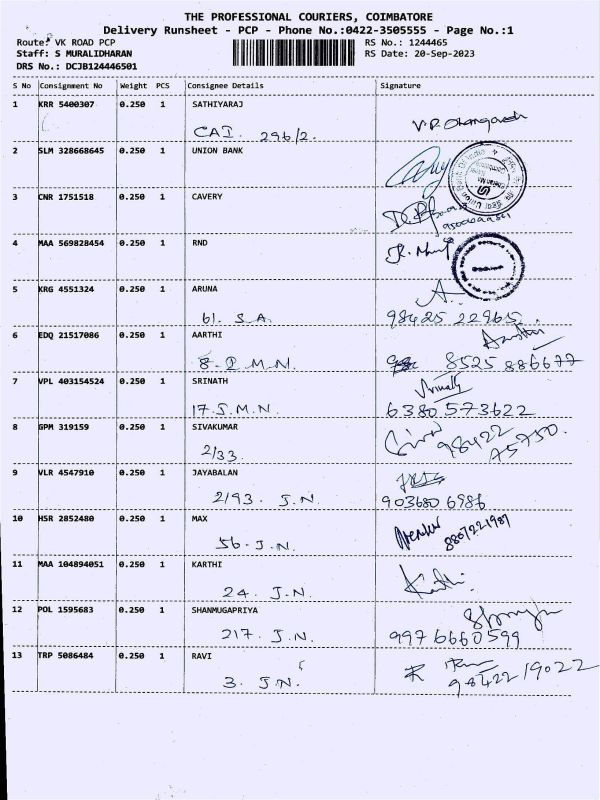 THE PROFESSIONAL COURIERS, COIMBATORE
Delivery Runsheet - PCP - Phone No.:0422-3505555 - Page No.:1
Route: VK ROAD PCP RS No.: 1244465
Staff: S MURALIDHARAN RS Date: 20-Sep-2023
DRS No.: DCJB124446501
S No Consignment No Weight PCS Consignee Details Signature
1 KRR 5400307 0.250 1 SATHIYARAJ
CAI. 296/2.
2 SLM 328668645 0.250 1 UNION BANK
3 CNR 1751518 0.250 1 CAVERY
4 MAA 569828454 0.250 1 RND
5 KRG 4551324 0.250 1 ARUNA
61. S.A. 98425 22965
6 EDQ 21517086 0.250 1 AARTHI
8-I.M.N. 8525 886677
7 VPL 403154524 0.250 1 SRINATH
17.J.M.N. 6380573622
8 GPM 319159 0.250 1 SIVAKUMAR
2/33. 98422 75750.
9 VLR 4547910 0.250 1 JAYABALAN
2/93. J.N. 903680 6986
10 HSR 2852480 0.250 1 MAX
56-J.N. 8807221987
11 MAA 104894051 0.250 1 KARTHI
24. J.N. Karthi.
12 POL 1595683 0.250 1 SHANMUGAPRIYA
217. J.N. 9976660599
13 TRP 5086484 0.250 1 RAVI
3. J.N. 98422 19022